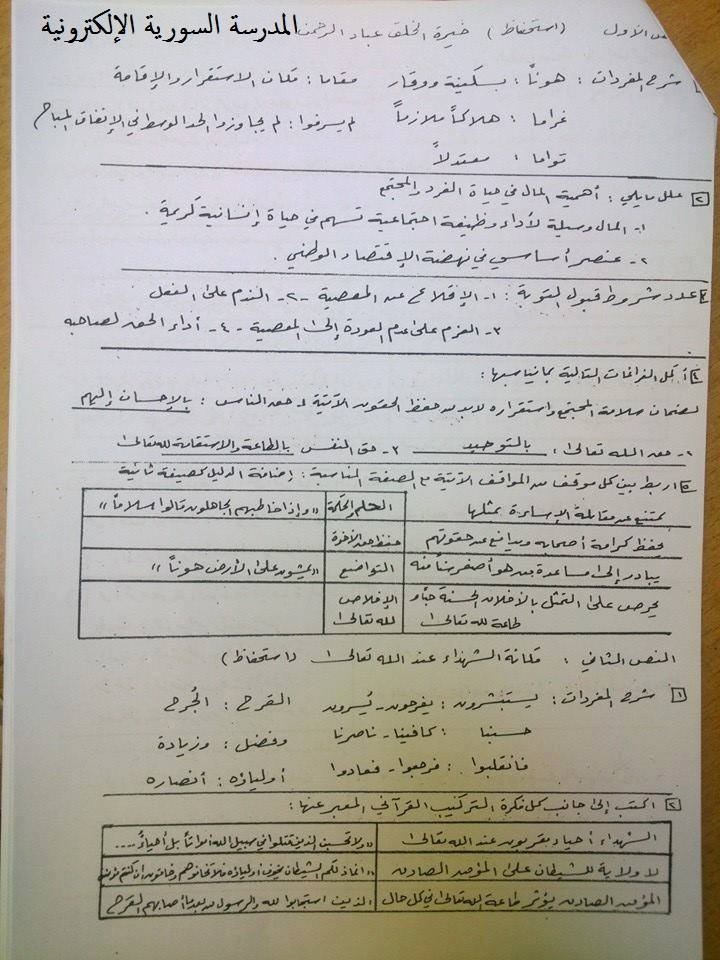 المدرسة السورية الإلكترونية
النص الأول (استحفاظ) خيرة الخلق عباد الرحمن
١ شرح المفردات : هوناً : بسكينة ووقار مقاما : مكان الاستقرار والإقامة
غراما : هلاكاً ملازماً لم يسرفوا : لم يجاوزوا الحد الوسط في الإنفاق المباح
قواما : معتدلاً
٢ علل مايلي : أهمية المال في حياة الفرد والمجتمع
١- المال وسيلة لأداء وظيفة اجتماعية تسهم في حياة إنسانية كريمة .
٢- عنصر أساسي في نهضة الإقتصاد الوطني .
٣ عدد شروط قبول التوبة : ١- الإقلاع عن المعصية - ٢- الندم على الفعل
٣- العزم على عدم العودة إلى المعصية - ٤- أداء الحق لصاحبه
٤ أكمل الفراغات التالية بما يناسبها :
لضمان سلامة المجتمع واستقراره لابد من حفظ الحقوق الآتية ١- حق الناس : بالإحسان إليهم
٢- حق الله تعالى : بالتوحيد ٣- حق النفس بالطاعة والاستقامة لله تعالى
٥ اربط بين كل موقف من المواقف الآتية مع الصفة المناسبة : إضافة الدليل كصيغة ثانية
يمتنع عن مقابلة الإساءة بمثلها الحلم الحكمة «وإذا خاطبهم الجاهلون قالوا سلاماً»
يحفظ كرامة أصحابه ويدافع عن حقوقهم حفظ حق الأخوة
يبادر إلى مساعدة من هو أصغر سناً منه التواضع «يمشون على الأرض هوناً»
يحرص على التمثل بالأخلاق الحسنة حباً و الإخلاص
طاعة لله تعالى لله تعالى
النص الثاني : مكانة الشهداء عند الله تعالى (استحفاظ)
١ شرح المفردات : يستبشرون : يفرحون - يُسرون القرح : الجُرح
حسبنا : كافينا - ناصرنا وفضل : وزيادة
فانقلبوا : فرجعوا - فعادوا أولياؤه : أنصاره
٢ اكتب إلى جانب كل فكرة التركيب القرآني المعبر عنها :
الشهداء أحياء مقربون عند الله تعالى «ولا تحسبن الذين قتلوا في سبيل الله أمواتاً بل أحياءٌ....
لا ولاية للشيطان على المؤمن الصادق «انما ذلكم الشيطان يخوف أولياؤه فلا تخافوهم وخافون ان كنتم مؤمنين
المؤمن الصادق يؤثر طاعة الله تعالى في كل حال الذين استجابوا لله والرسول من بعد ما أصابهم القرح